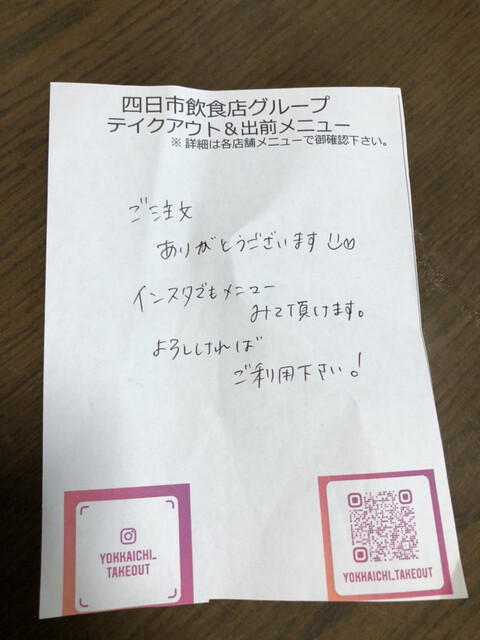 四日市飲食店グループ
テイクアウト＆出前メニュー
※ 詳細は各店舗メニューで御確認下さい。
ご注文
ありがとうございます
インスタでもメニュー
みて頂けます。
よろしければ
ご利用下さい!
YOKKAICHI_
TAKEOUT
YOKKAICHI_TAKEOUT